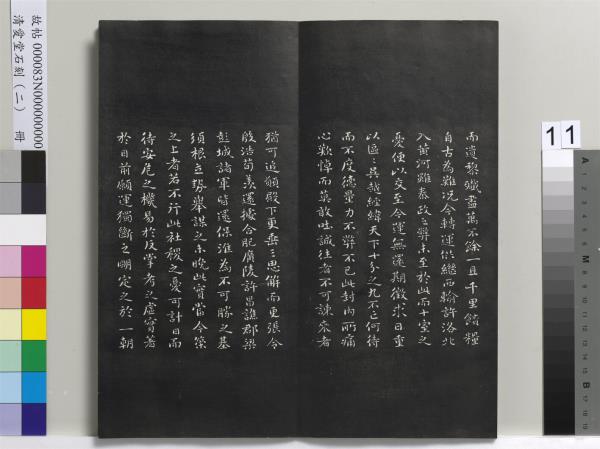 而遺黎殲盡萬不餘一且千里饋糧
自古為難況今轉運供繼西輸許洛北
入黃河雖秦政之弊未至於此而十室之
憂便以交至今運無還期徵求日重
以區區吳越經緯天下十分之九不亡何待
而不度德量力不弊不已此封內所痛
心歎悼而莫敢吐誠往者不可諫來者
猶可追願殿下更垂三思解而更張令
殷浩荀羨還據合肥廣陵許昌譙郡梁
彭城諸軍皆還保淮為不可勝之基
須根立勢舉謀之未晚此實當今策
之上者若不行此社稷之憂可計日而
待安危之機易於反掌考之虛實著
於目前願運獨斷之明定之於一朝
故帖 000083N000000000
清愛堂石刻（二） 冊
11
A
B